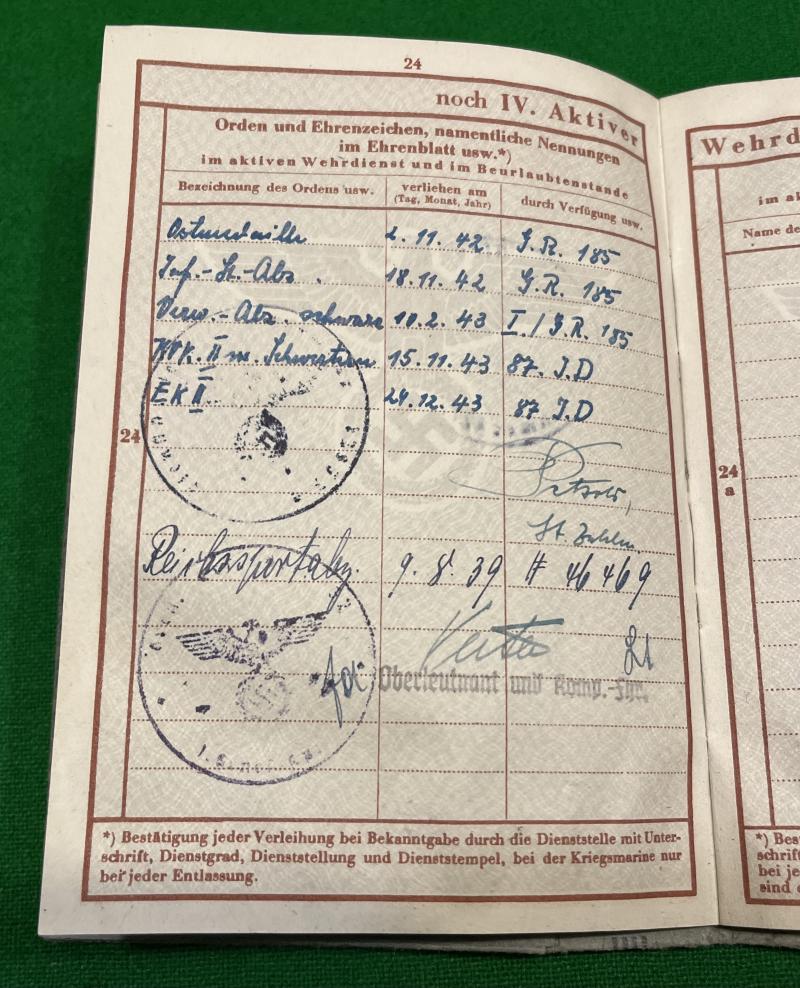 24
noch IV. Aktiver
Orden und Ehrenzeichen, namentliche Nennungen
im Ehrenblatt usw.*)
im aktiven Wehrdienst und im Beurlaubtenstande
Bezeichnung des Ordens usw. verliehen am (Tag, Monat, Jahr) durch Verfügung usw.
Ostmedaille 2.11.42 G.R. 185
Inf.-St.-Abz. 18.11.42 G.R. 185
Verw.-Abz. schwarz 10.2.43 I./G.R. 185
KVK. II m. Schwertern 15.11.43 87. I.D
EK II 24.12.43 87 I.D
24
Reichssportabz. 9.8.39 # 46469
Oberleutnant und Komp.-Fhr.
*) Bestätigung jeder Verleihung bei Bekanntgabe durch die Dienststelle mit Unter-
schrift, Dienstgrad, Dienststellung und Dienststempel, bei der Kriegsmarine nur
bei jeder Entlassung.
Wehrd
im ak
Name de
24
a
*) Bes
schrift
bei je
sind e